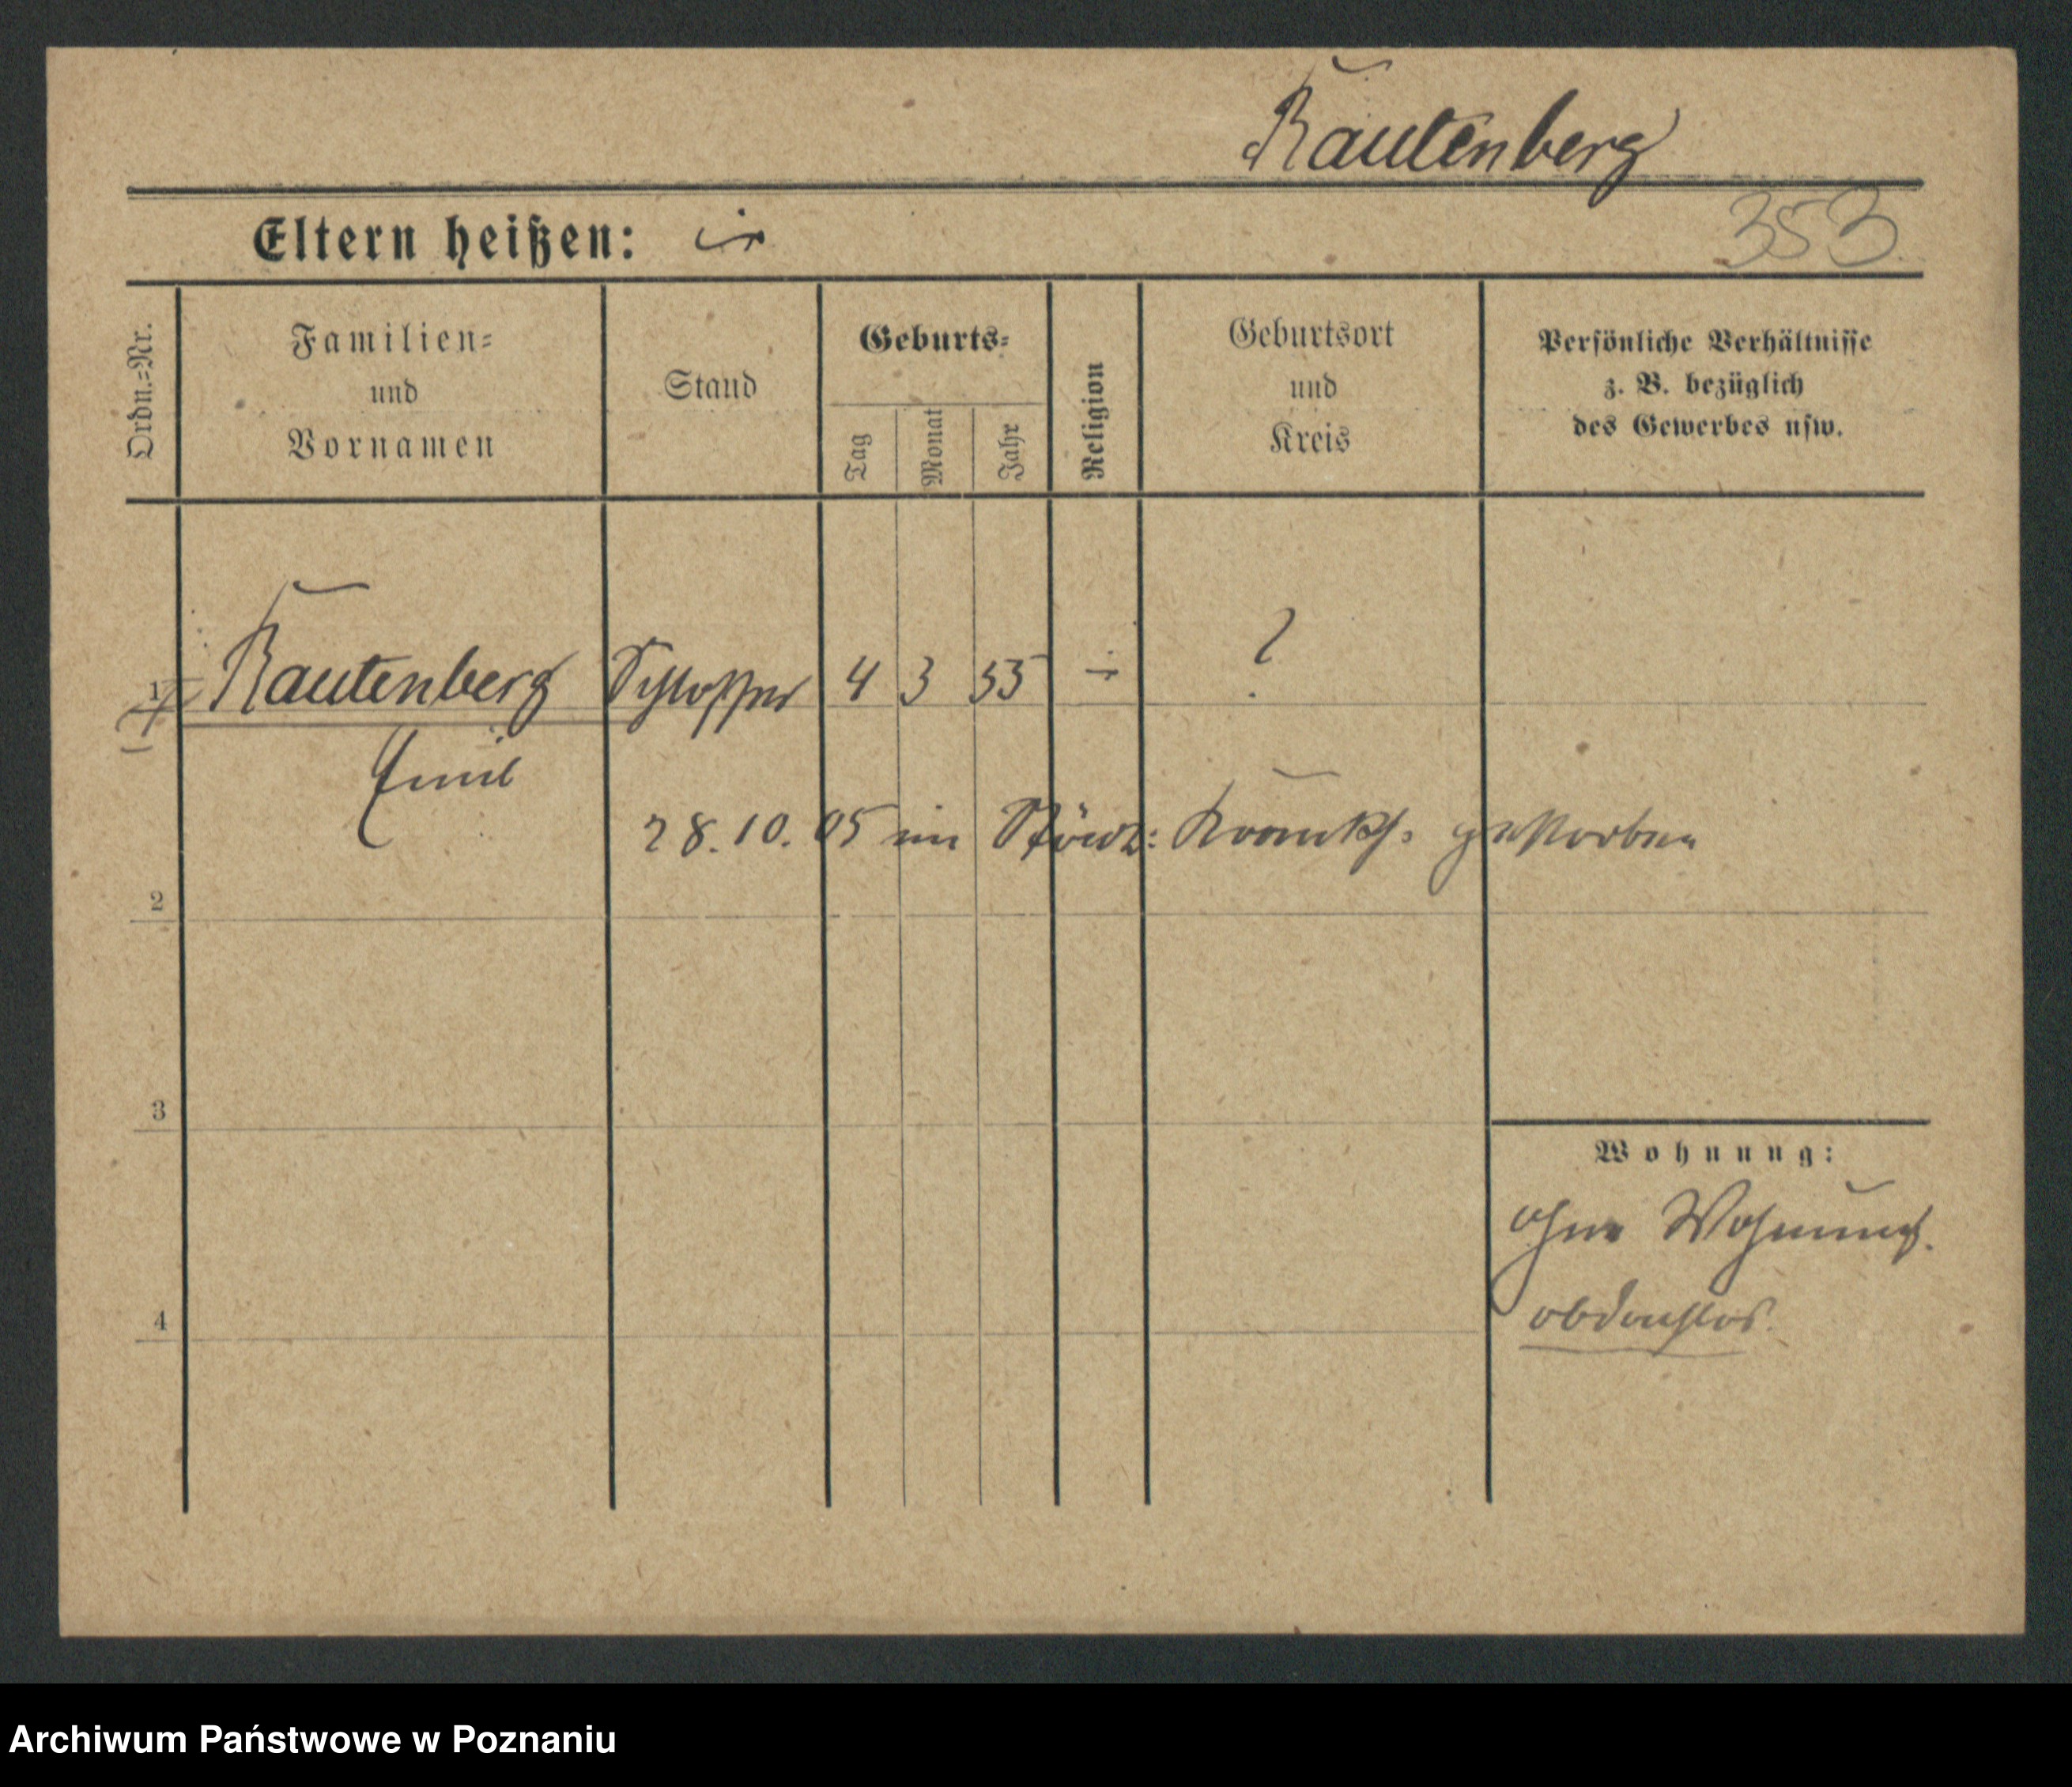 Rautenberg
Eltern heißen:
353.
Ordn.=Nr.
Familien=
und
Vornamen
Stand
Geburts=
Tag
Monat
Jahr
Religion
Geburtsort
und
Kreis
Persönliche Verhältnisse
z. B. bezüglich
des Gewerbes usw.
1 Rautenberg Schlosser 4 3 55 ?
Emil
28.10.05 im Städt: Krankh. gestorben
2
3
Wohnung:
ohne Wohnung.
4
obdachlos.
Archiwum Państwowe w Poznaniu